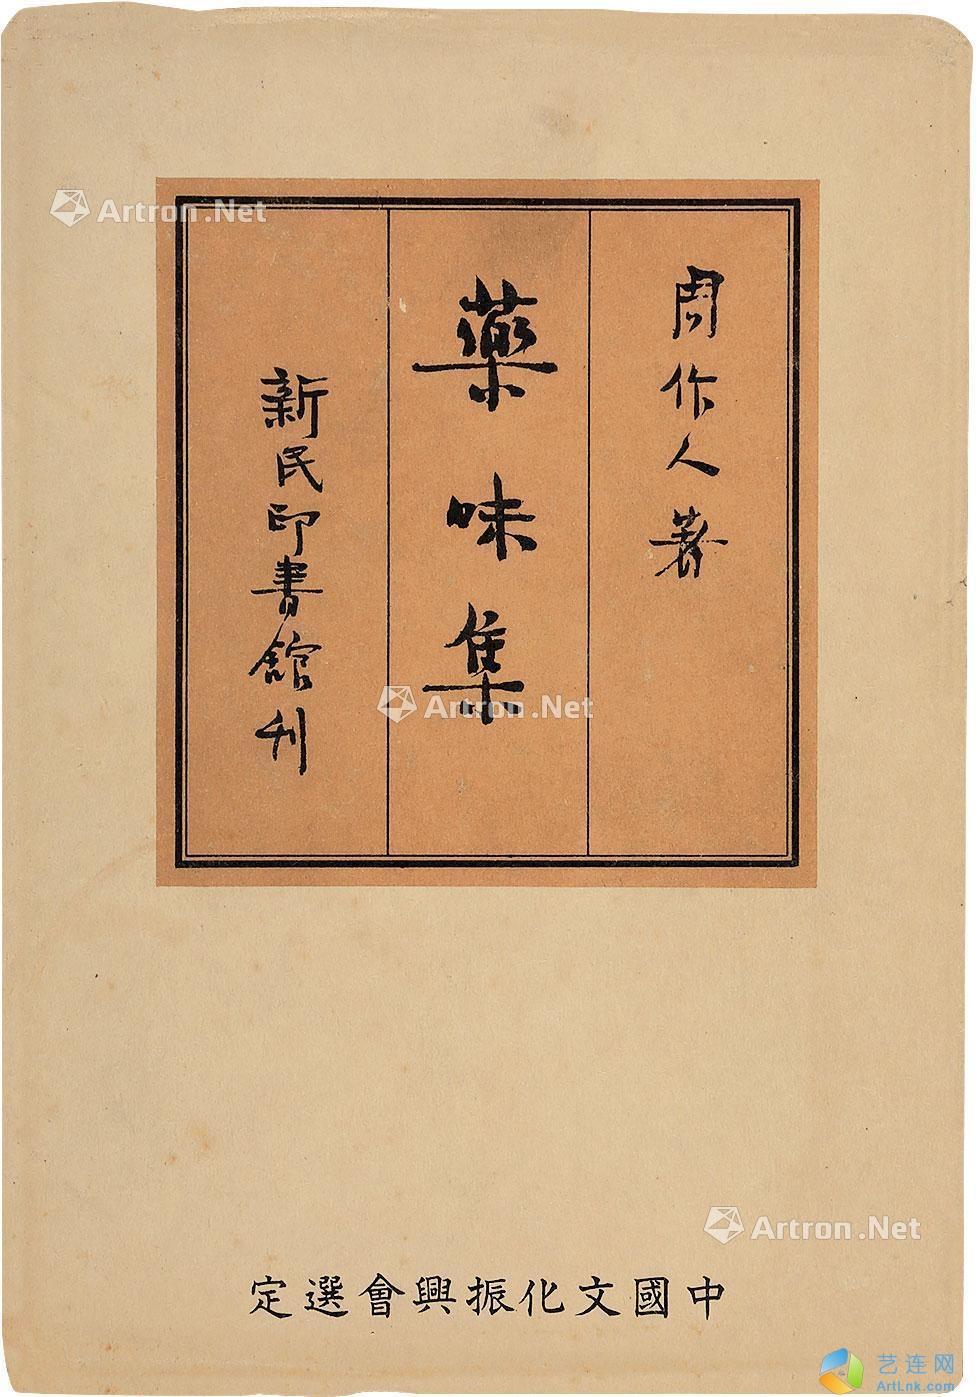 周作人著
藥味集
新民印書館刊
中國文化振興會選定
Artron.Net
Artron.Net
Artron.Net
艺连网
ArtLnk.com